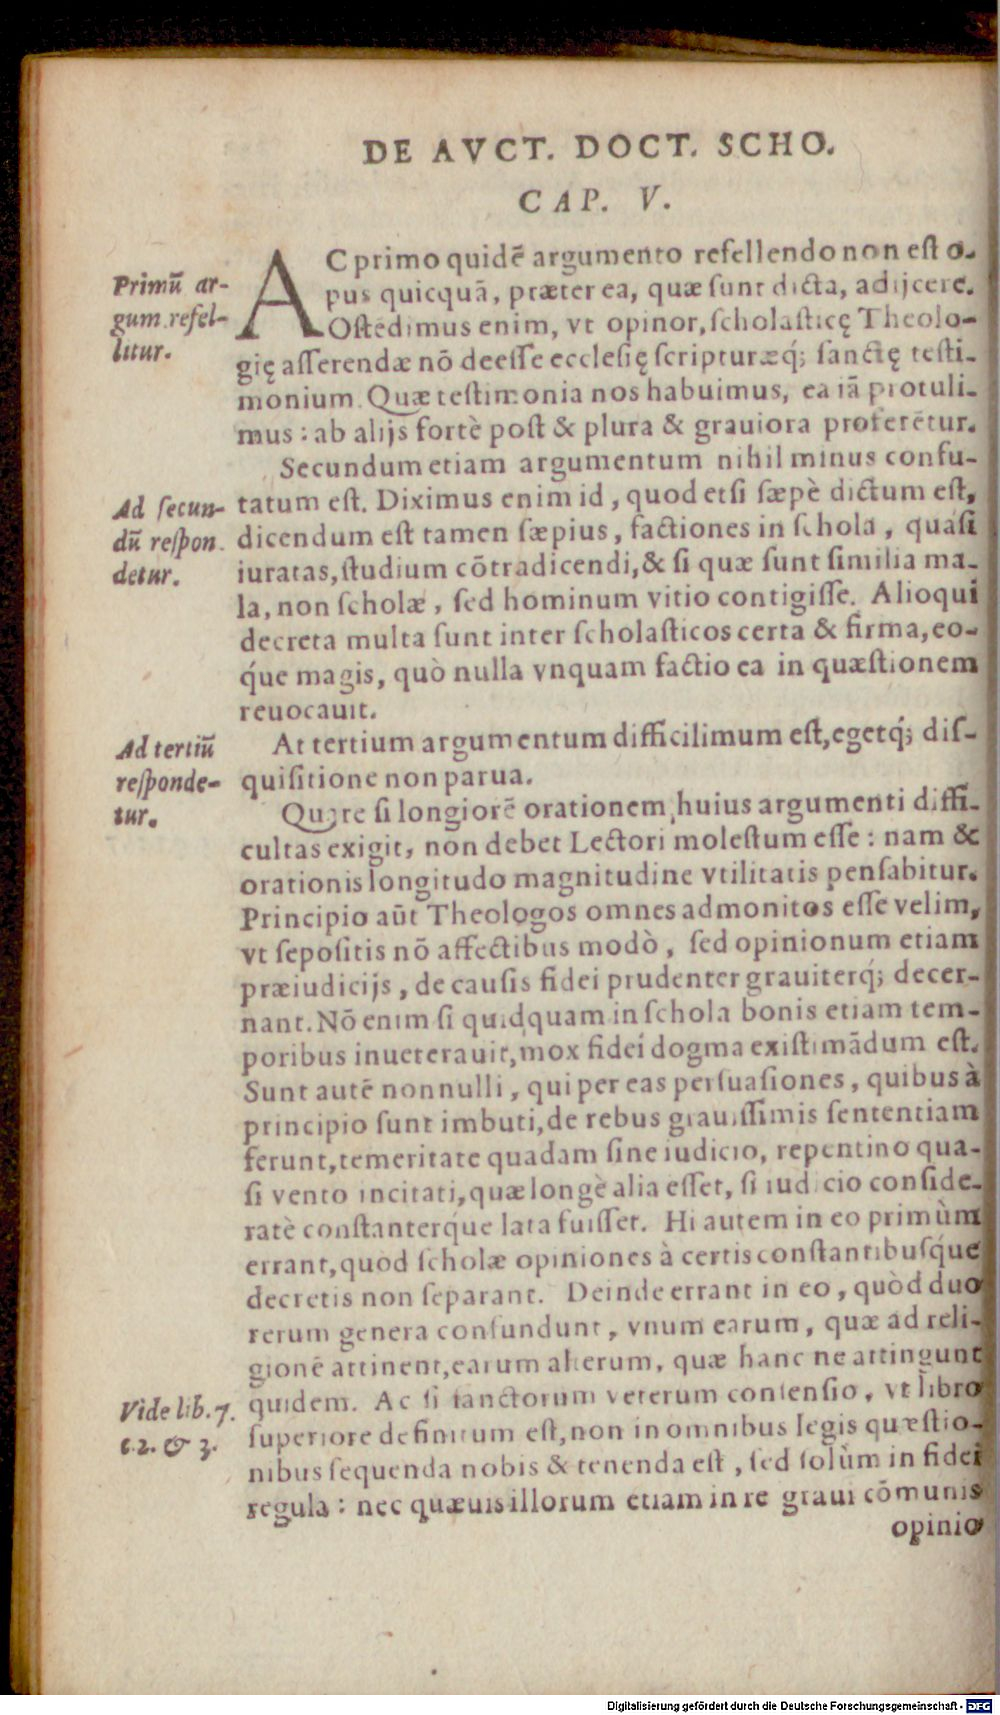 DE AVCT. DOCT. SCHO.
CAP. V.
Primū ar-
gum. refel-
litur.
AC primo quidē argumento refellendo non est o-
pus quicquā, præter ea, quæ sunt dicta, adijcere.
Ostēdimus enim, vt opinor, scholasticę Theolo-
gię asserendæ nō deesse ecclesię scripturæq́; sanctę testi-
monium. Quæ testimonia nos habuimus, ea iā protuli-
mus: ab alijs fortè post & plura & grauiora proferētur.
Secundum etiam argumentum nihil minus confu-
Ad secun-
dū respon
detur.
tatum est. Diximus enim id, quod etsi sæpè dictum est,
dicendum est tamen sæpius, factiones in schola, quasi
iuratas, studium cōtradicendi, & si quæ sunt similia ma-
la, non scholæ, sed hominum vitio contigisse. Alioqui
decreta multa sunt inter scholasticos certa & firma, eo-
q́ue magis, quò nulla vnquam factio ea in quæstionem
reuocauit.
Ad tertiū
responde-
tur.
At tertium argumentum difficilimum est, egetq́; dis-
quisitione non parua.
Quare si longiorē orationem huius argumenti diffi-
cultas exigit, non debet Lectori molestum esse: nam &
orationis longitudo magnitudine vtilitatis pensabitur.
Principio aūt Theologos omnes admonitos esse velim,
vt sepositis nō affectibus modò, sed opinionum etiam
præiudicijs, de causis fidei prudenter grauiterq́; decer-
nant. Nō enim si quidquam in schola bonis etiam tem-
poribus inueterauit, mox fidei dogma existimādum est.
Sunt autē nonnulli, qui per eas persuasiones, quibus à
principio sunt imbuti, de rebus grauissimis sententiam
ferunt, temeritate quadam sine iudicio, repentino qua-
si vento incitati, quæ longè alia esset, si iudicio conside-
ratè constanterq́ue lata fuisset. Hi autem in eo primùm
errant, quòd scholæ opiniones à certis constantibusq́ue
decretis non separant. Deinde errant in eo, quòd duo
rerum genera confundunt, vnum earum, quæ ad reli-
gionē attinent, earum alterum, quæ hanc ne attingunt
Vide lib. 7.
c. 2. & 3.
quidem. Ac si sanctorum veterum consensio, vt libro
superiore definitum est, non in omnibus legis quæstio-
nibus sequenda nobis & tenenda est, sed solùm in fidei
regula: nec quæuis illorum etiam in re graui cōmunis
opinio
Digitalisierung gefördert durch die Deutsche Forschungsgemeinschaft - DFG